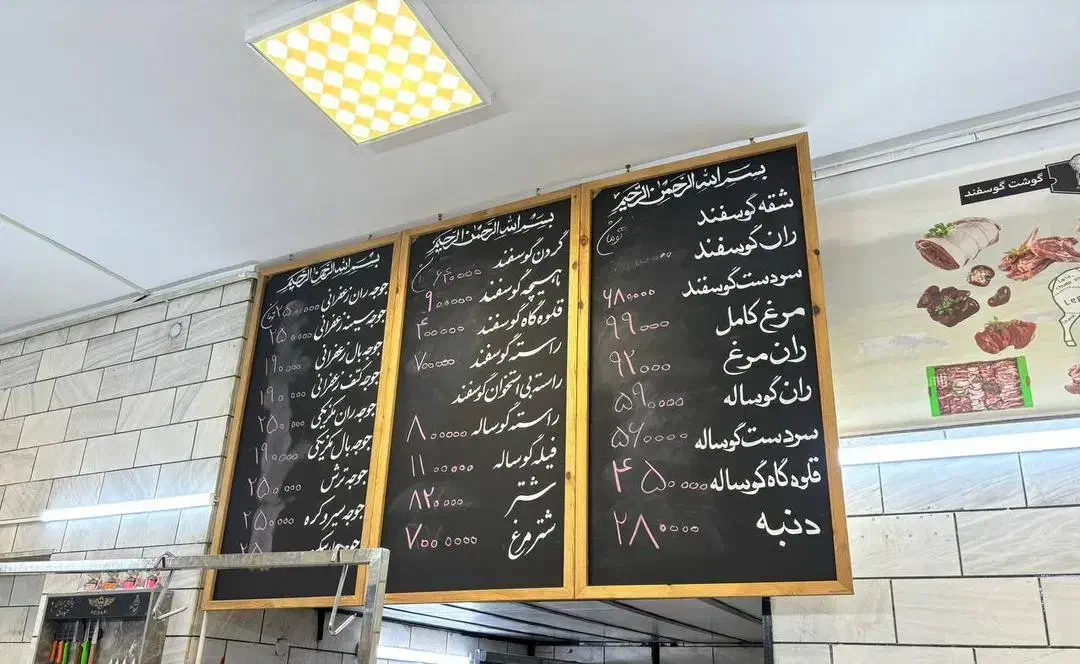 بسم الله الرحمن الرحیم
شقه گوسفند
تومان
ران گوسفند
سردست گوسفند ۶۸۰۰۰۰
مرغ کامل ۹۹۰۰۰
ران مرغ ۹۲۰۰۰
ران گوساله ۵۹۰۰۰۰
سردست گوساله ۵۶۰۰۰۰
قلوه گاه گوساله ۴۵۰۰۰۰
دنبه ۲۸۰۰۰۰
بسم الله الرحمن الرحیم
گردن گوسفند ۶۴۰۰۰۰
ماهیچه گوسفند ۹۰۰۰۰۰
قلوه گاه گوسفند ۴۰۰۰۰۰
راسته گوسفند ۷۰۰۰۰۰
راسته بی استخوان گوسفند
راسته گوساله ۸۰۰۰۰۰
فیله گوساله ۱۱۰۰۰۰۰
شتر ۸۲۰۰۰۰
شترمرغ ۷۰۰۰۰۰۰
بسم الله الرحمن الرحیم
جوجه ران زعفرانی ۲۵۰۰۰۰
جوجه سینه زعفرانی ۲۵۰۰۰۰
جوجه بال زعفرانی ۱۹۰۰۰۰
جوجه کتف زعفرانی ۱۹۰۰۰۰
جوجه ران مکزیکی ۲۵۰۰۰۰
جوجه بال مکزیکی ۱۹۰۰۰۰
جوجه ترش ۲۵۰۰۰۰
جوجه سیر و کره ۲۵۰۰۰۰
گوشت گوسفند